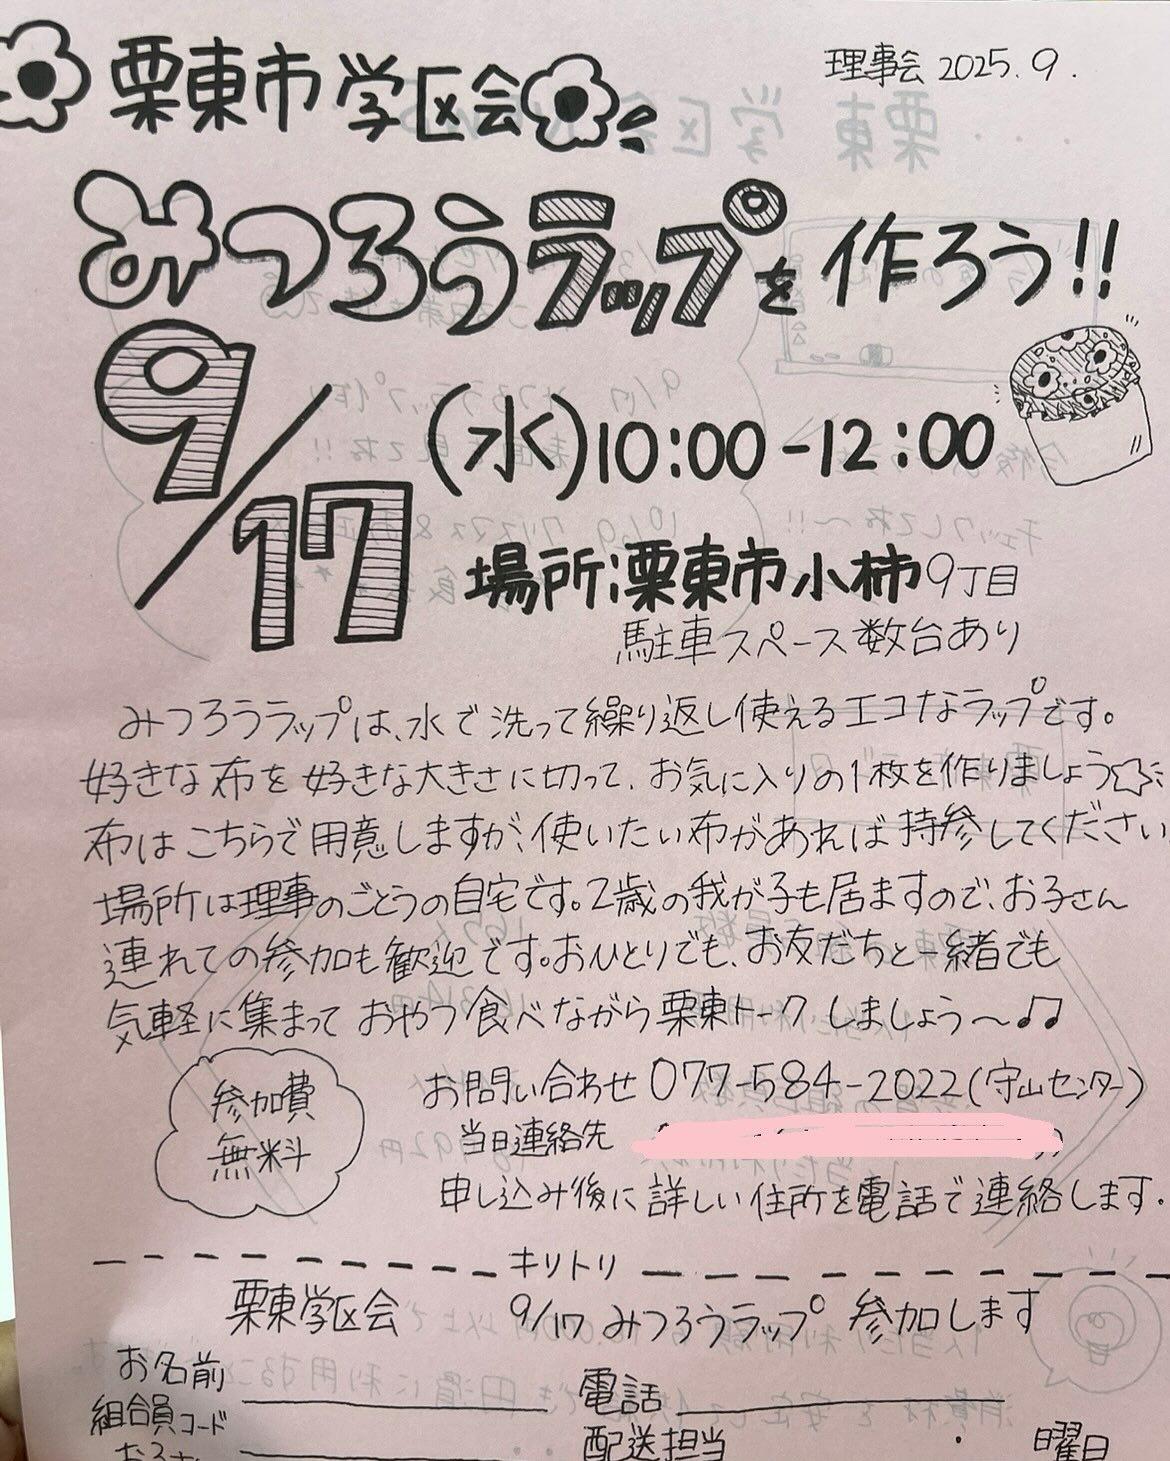 栗東市学区会
理事会 2025.9.
みつろうラップを作ろう!!
9/17(水)10:00-12:00
場所:栗東市小柿9丁目
駐車スペース数台あり
みつろうラップは、水で洗って繰り返し使えるエコなラップです。
好きな布を好きな大きさに切って、お気に入りの1枚を作りましょう☆
布はこちらで用意しますが、使いたい布があれば持参してください
場所は理事のごとうの自宅です。2歳の我が子も居ますので、お子さん
連れての参加も歓迎です。おひとりでも、お友だちと一緒でも
気軽に集まっておやつ食べながら栗東トークしましょう〜♫
参加費
無料
お問い合わせ 077-584-2022(守山センター)
当日連絡先
申し込み後に詳しい住所を電話で連絡します。
キリトリ
栗東学区会 9/17 みつろうラップ 参加します
お名前 電話
組合員コード
配送担当 ・ 曜日